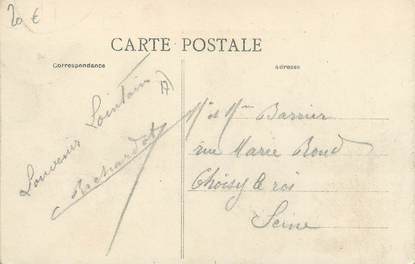 20 €
CARTE POSTALE
Correspondance
Adresse
Souvenir Lointain
Mr et Mme Barrier
rue Marie
Choisy le roi
Seine